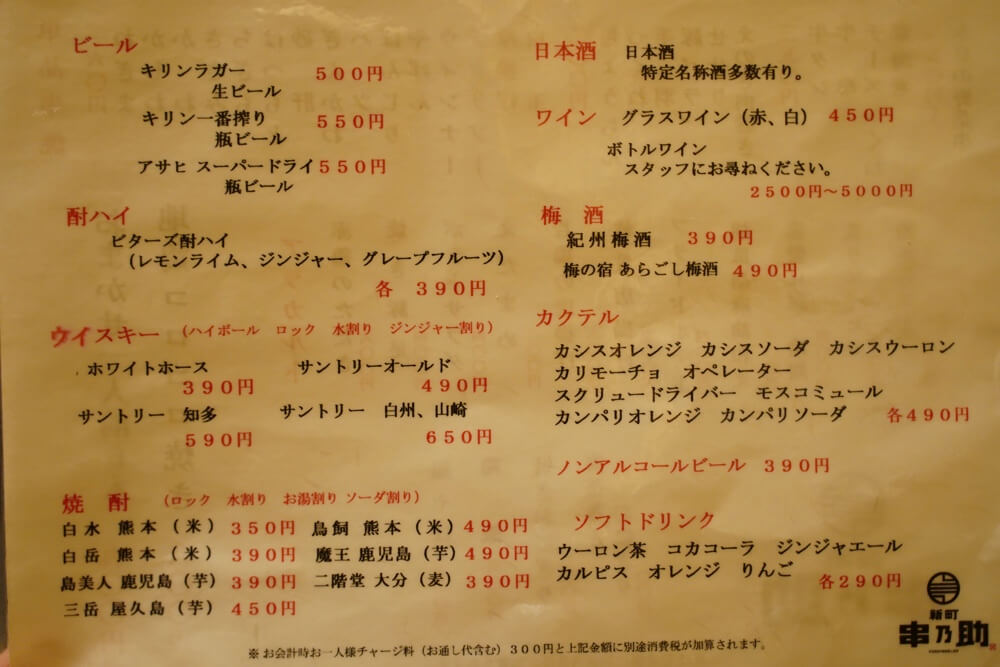 ビール
キリンラガー 500円
生ビール
キリン一番搾り 550円
瓶ビール
アサヒ スーパードライ 550円
瓶ビール
酎ハイ
ビターズ酎ハイ
（レモンライム、ジンジャー、グレープフルーツ）
各 390円
ウイスキー （ハイボール ロック 水割り ジンジャー割り）
ホワイトホース サントリーオールド
390円 490円
サントリー 知多 サントリー 白州、山崎
590円 650円
焼酎 （ロック 水割り お湯割り ソーダ割り）
白水 熊本（米） 350円 鳥飼 熊本（米） 490円
白岳 熊本（米） 390円 魔王 鹿児島（芋） 490円
島美人 鹿児島（芋） 390円 二階堂 大分（麦） 390円
三岳 屋久島（芋） 450円
日本酒 日本酒
特定名称酒多数有り。
ワイン グラスワイン（赤、白） 450円
ボトルワイン
スタッフにお尋ねください。
2500円～5000円
梅酒
紀州梅酒 390円
梅の宿 あらごし梅酒 490円
カクテル
カシスオレンジ カシスソーダ カシスウーロン
カリモーチョ オペレーター
スクリュードライバー モスコミュール
カンパリオレンジ カンパリソーダ 各490円
ノンアルコールビール 390円
ソフトドリンク
ウーロン茶 コカコーラ ジンジャエール
カルピス オレンジ りんご 各290円
新町
串乃助
※お会計時お一人様チャージ料（お通し代含む）300円と上記金額に別途消費税が加算されます。